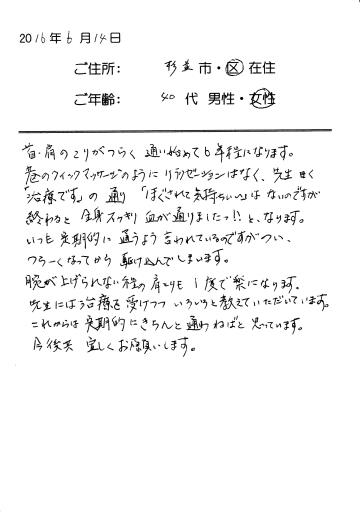 2016年6月14日
ご住所： 杉並 市・区 在住
ご年齢： 40 代 男性・女性
首・肩のこりがつらく 通い始めて6年程になります。
巷のクイックマッサージのように リラクゼーションはなく、先生曰く
「治療です」の通り 「ほぐされて気持ちいい」は ないのですが
終わると 全身スッキリ 血が通りましたっ!! と、なります。
いつも 定期的に 通うよう 言われているのですが つい、
つらーくなってから 駆け込んでしまいます。
腕が上げられない程の 肩こりも 1度で楽になります。
先生には 治療を 受けつつ いろいろと教えていただいています。
これからは 定期的に きちんと 通わねばと 思っています。
今後共 宜しくお願いします。